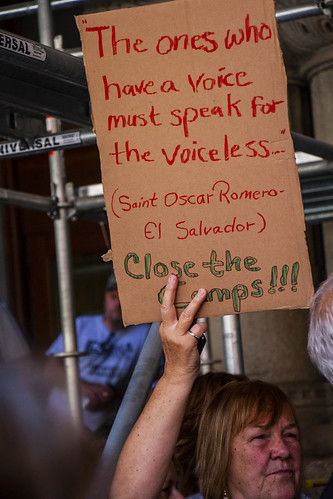 "The ones who
have a voice
must speak for
the voiceless..."
(Saint Oscar Romero-
El Salvador)
Close the
Camps!!!
UNIVERSAL
UNIVERSAL